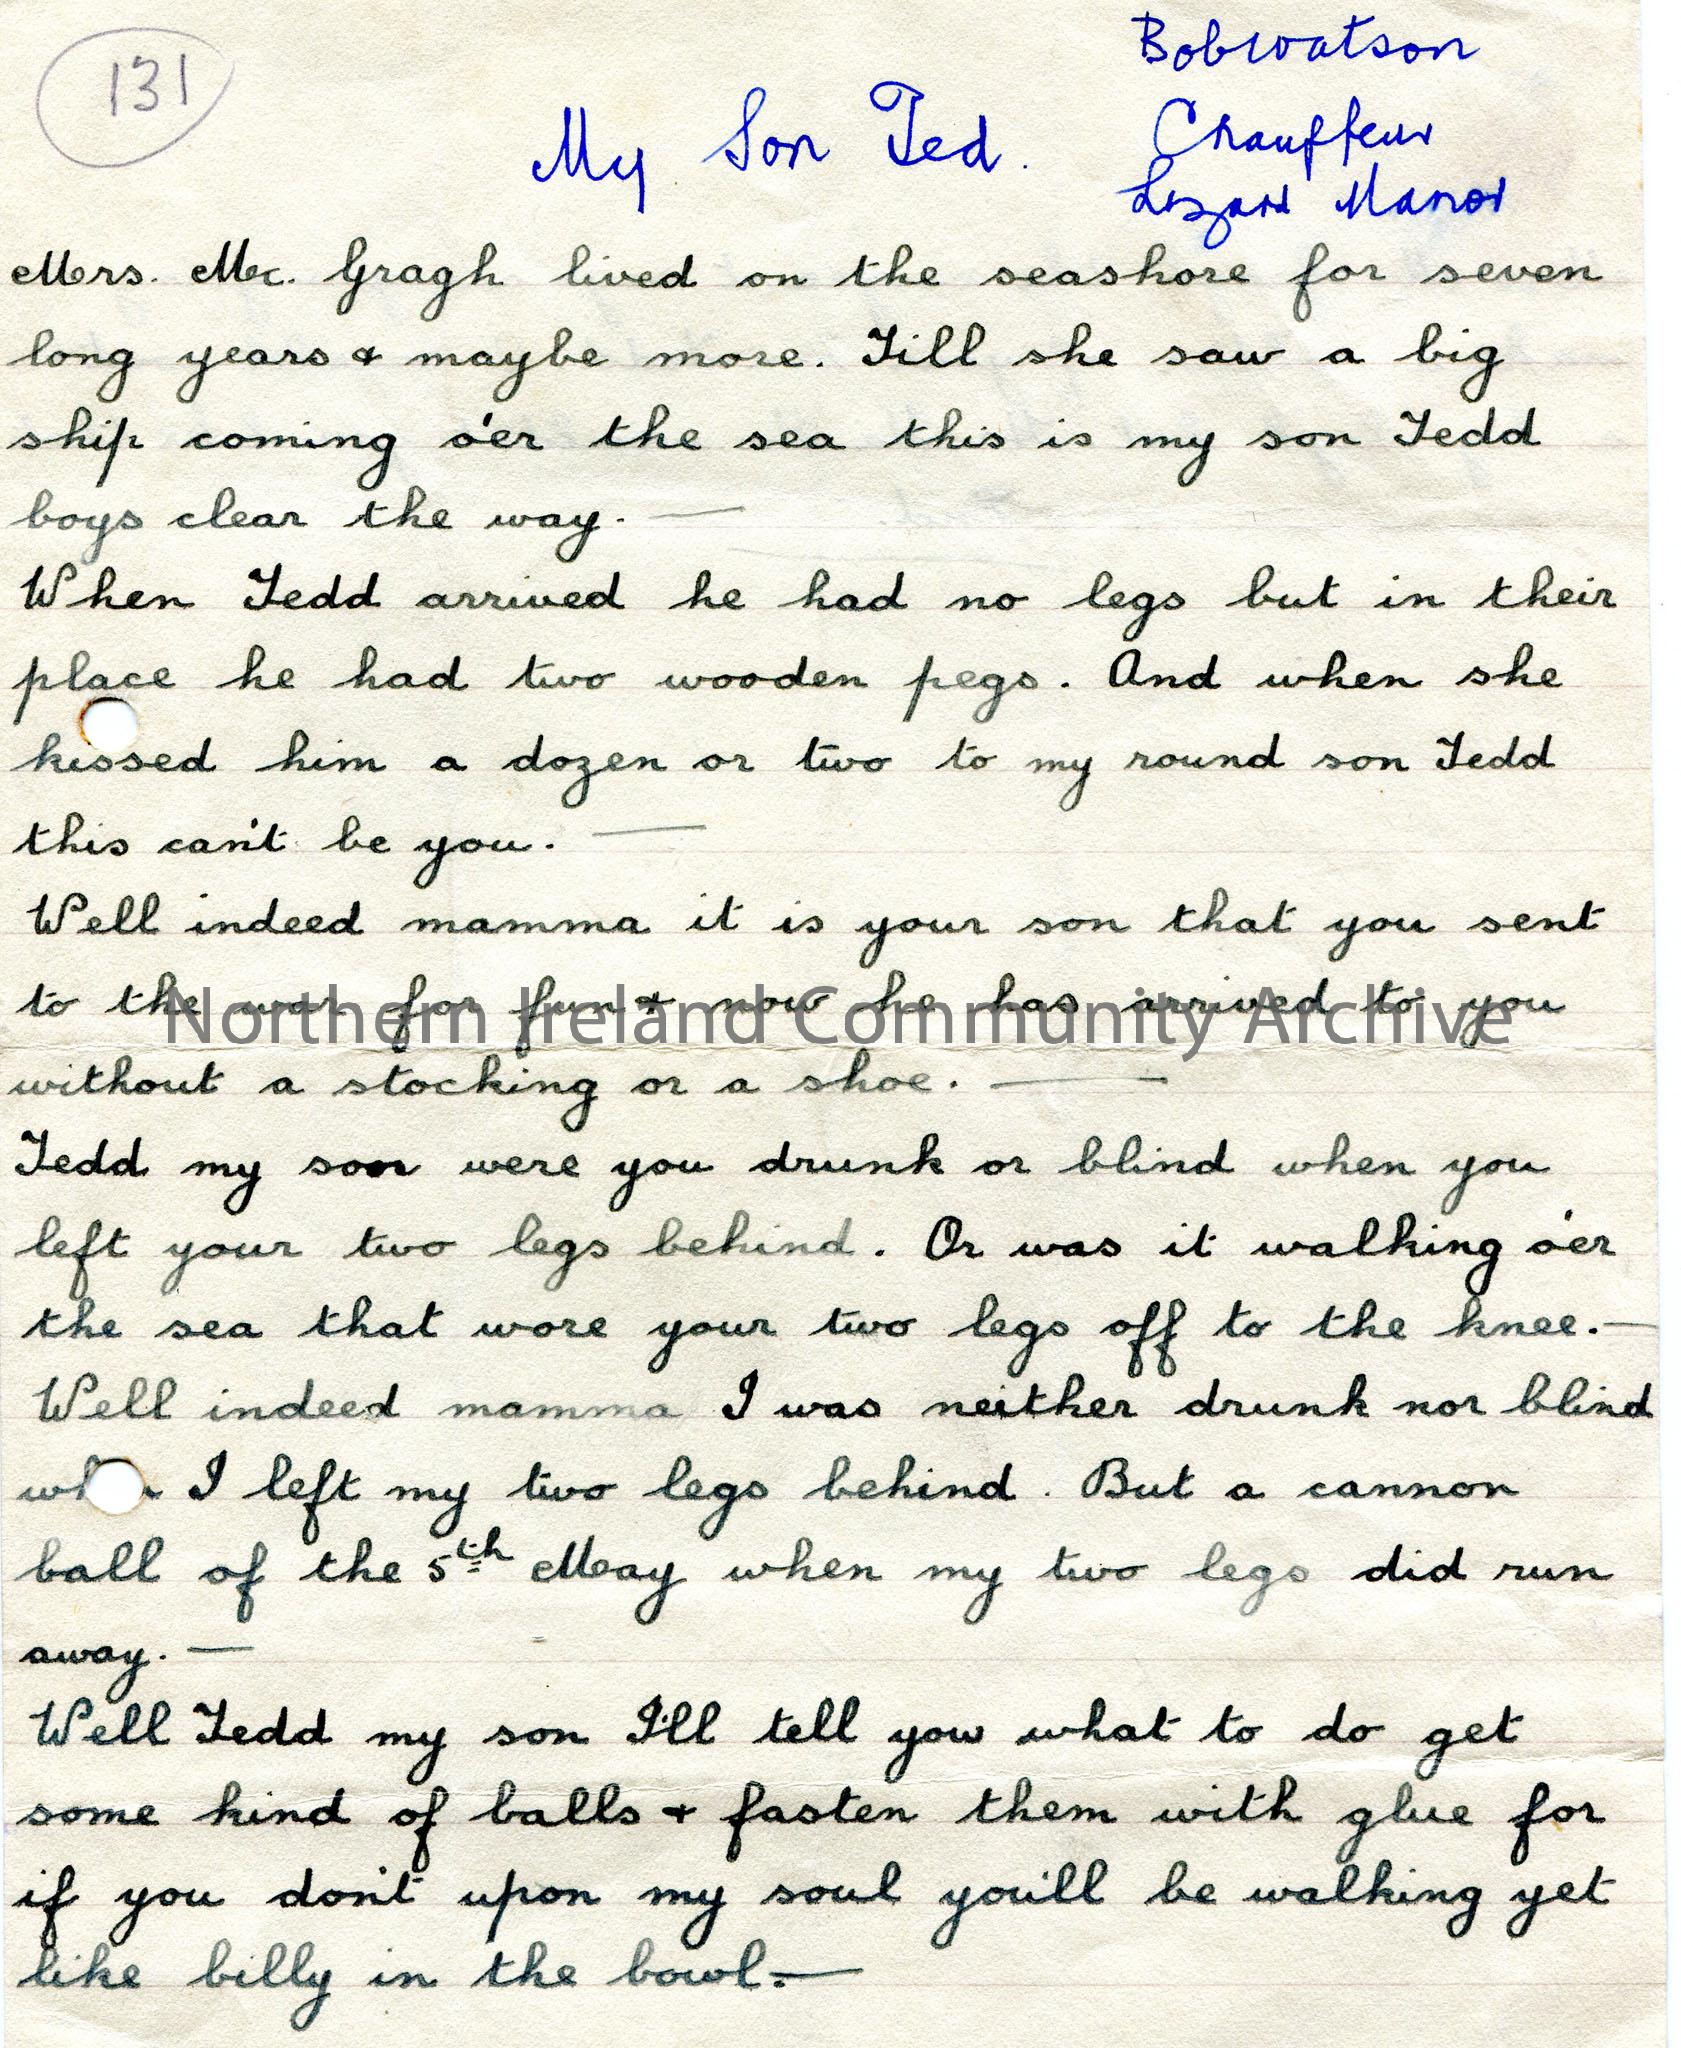 131
Bob Watson
My Son Ted.
Chauffeur
Lizard Manor
Mrs. Mc. Gragh lived on the seashore for seven
long years & maybe more. Till she saw a big
ship coming o'er the sea this is my son Tedd
boys clear the way. —
When Tedd arrived he had no legs but in their
place he had two wooden pegs. And when she
kissed him a dozen or two to my round son Tedd
this can't be you. —
Well indeed mamma it is your son that you sent
to the war for fun & now he has arrived to you
Northern Ireland Community Archive
without a stocking or a shoe. —
Tedd my son were you drunk or blind when you
left your two legs behind. Or was it walking o'er
the sea that wore your two legs off to the knee. —
Well indeed mamma I was neither drunk nor blind
when I left my two legs behind. But a cannon
ball of the 5th May when my two legs did run
away. —
Well Tedd my son I'll tell you what to do get
some kind of balls & fasten them with glue for
if you don't upon my soul you'll be walking yet
like billy in the bowl. —